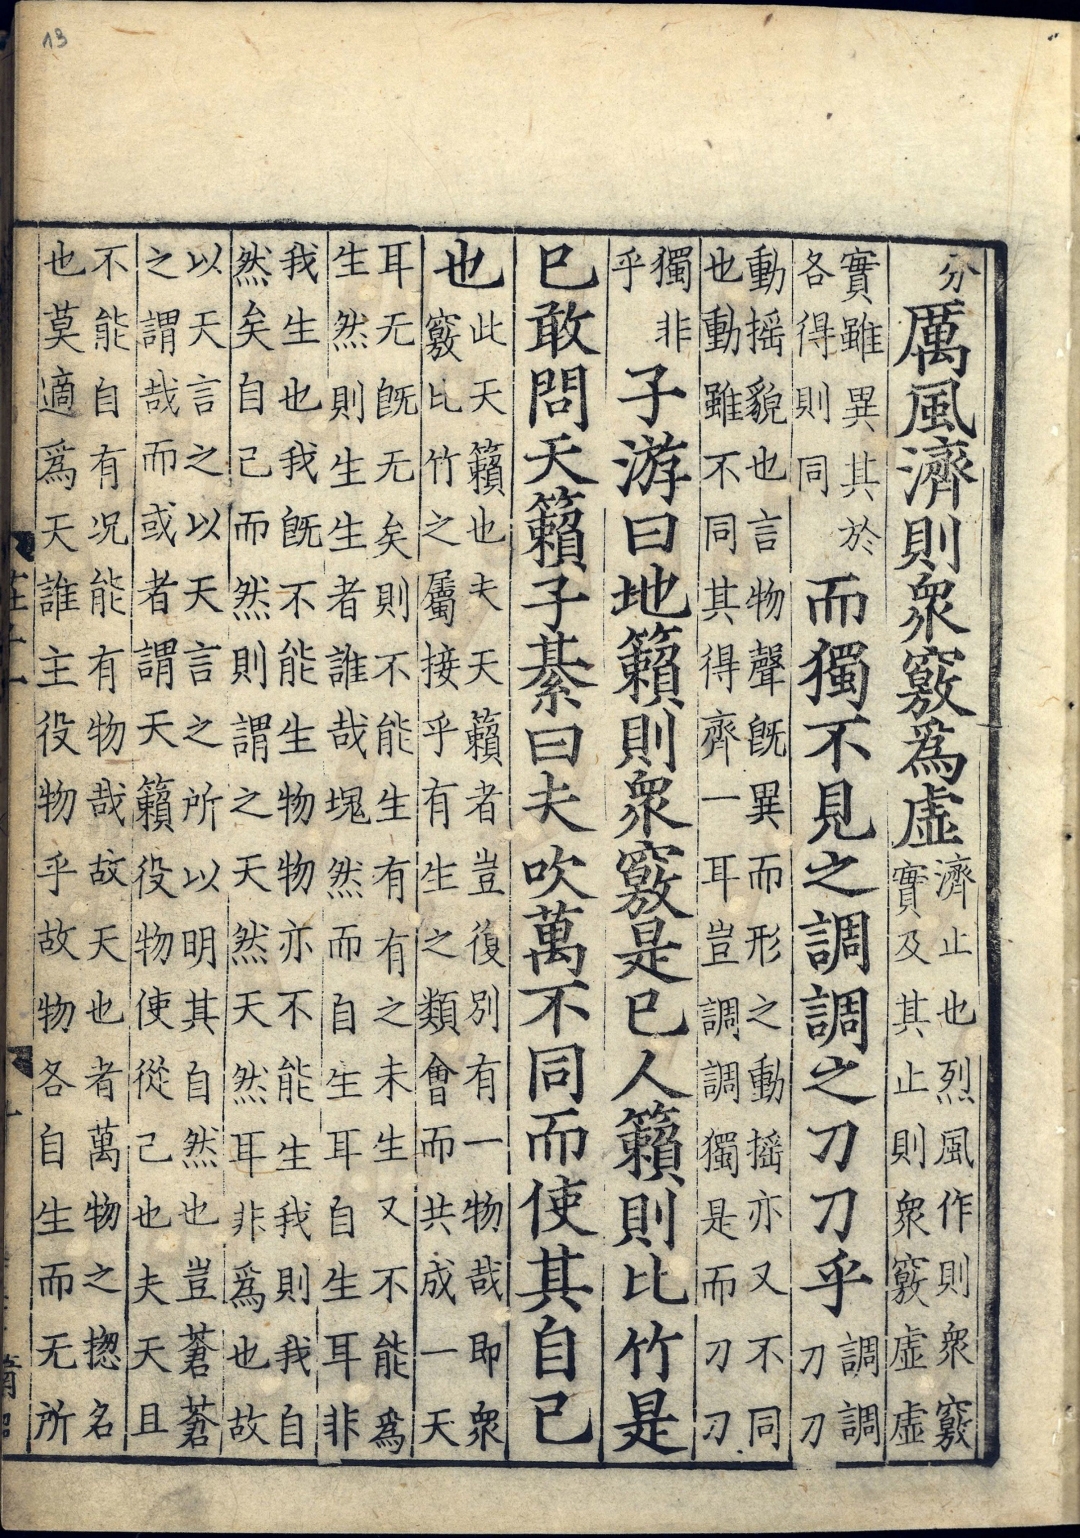 13
分厲風濟則衆竅爲虛濟止也烈風作則衆竅實及其止則衆竅虛虛
實雖異其於各得則同而獨不見之調調之刀刀乎調調刀刀
動摇貌也言物聲旣異而形之動摇亦又不同
也動雖不同其得齊一耳豈調調獨是而刁刁
獨非乎子游曰地籟則衆竅是巳人籟則比竹是
巳敢問天籟子綦曰夫吹萬不同而使其自已
也此天籟也夫天籟者豈復別有一物哉即衆竅比竹之屬接乎有生之類會而共成一天
耳无旣无矣則不能生有有之未生又不能爲
生然則生生者誰哉塊然而自生耳自生耳非
我生也我旣不能生物物亦不能生我則我自
然矣自己而然則謂之天然天然耳非爲也故
以天言之以天言之所以明其自然也豈蒼蒼
之謂哉而或者謂天籟役物使從己也夫天且
不能自有况能有物哉故天也者萬物之揔名
也莫適爲天誰主役物乎故物各自生而无所